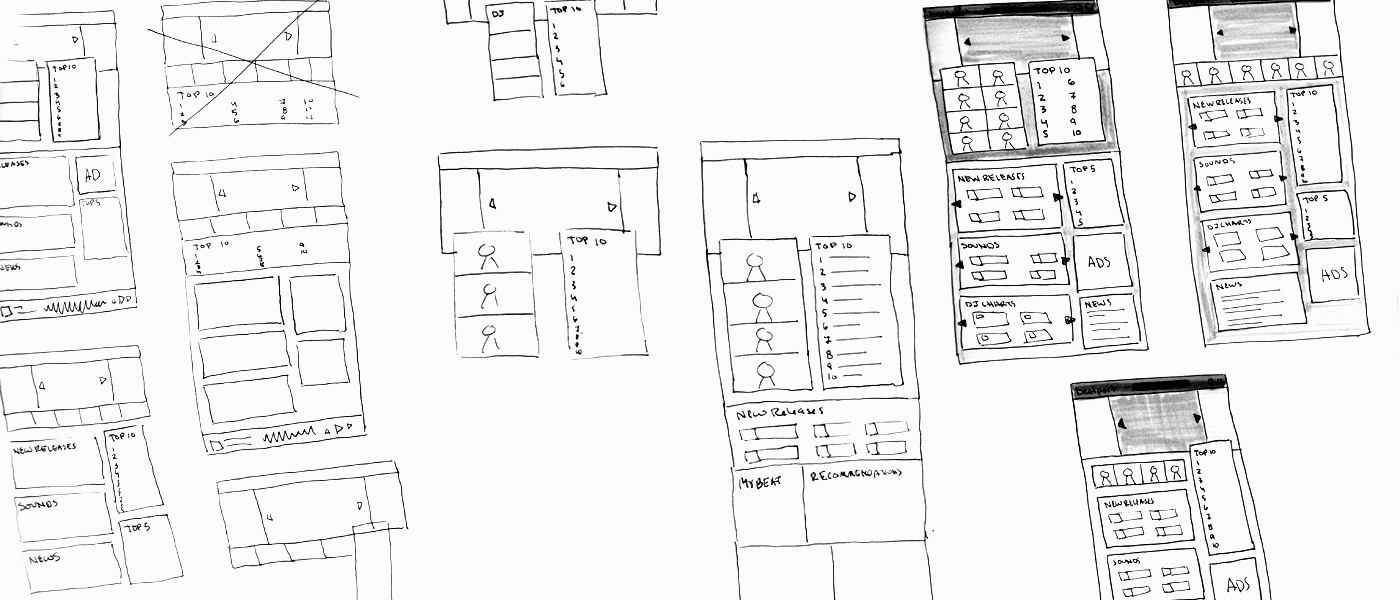 TOP 10
1
2
3
4
5
6
7
8
9
AD
TOP 5
NEWS
TOP 10
1
2
3
4
5
6
7
8
9
10
11
12
TOP 10
5
9
10
NEW RELEASES
SOUNDS
NEWS
TOP 10
1
2
3
4
TOP 5
DJ
TOP 10
1
2
3
4
5
6
TOP 10
1
2
3
4
5
6
7
8
9
10
TOP 10
1
2
3
4
5
6
7
8
9
10
New Releases
MY BEAT
RECOMMENDATIONS
TOP 10
1 6
2 7
3 8
4 9
5 10
NEW RELEASES
TOP 5
1
2
3
4
5
SOUNDS
ADS
DJ CHARTS
NEWS
NEW RELEASES
TOP 10
1
2
3
4
5
6
7
8
9
SOUNDS
TOP 5
1
2
3
DJ CHARTS
ADS
NEWS
Beatport
TOP 10
1
2
3
4
5
6
7
8
9
10
NEW RELEASES
SOUNDS
ADS